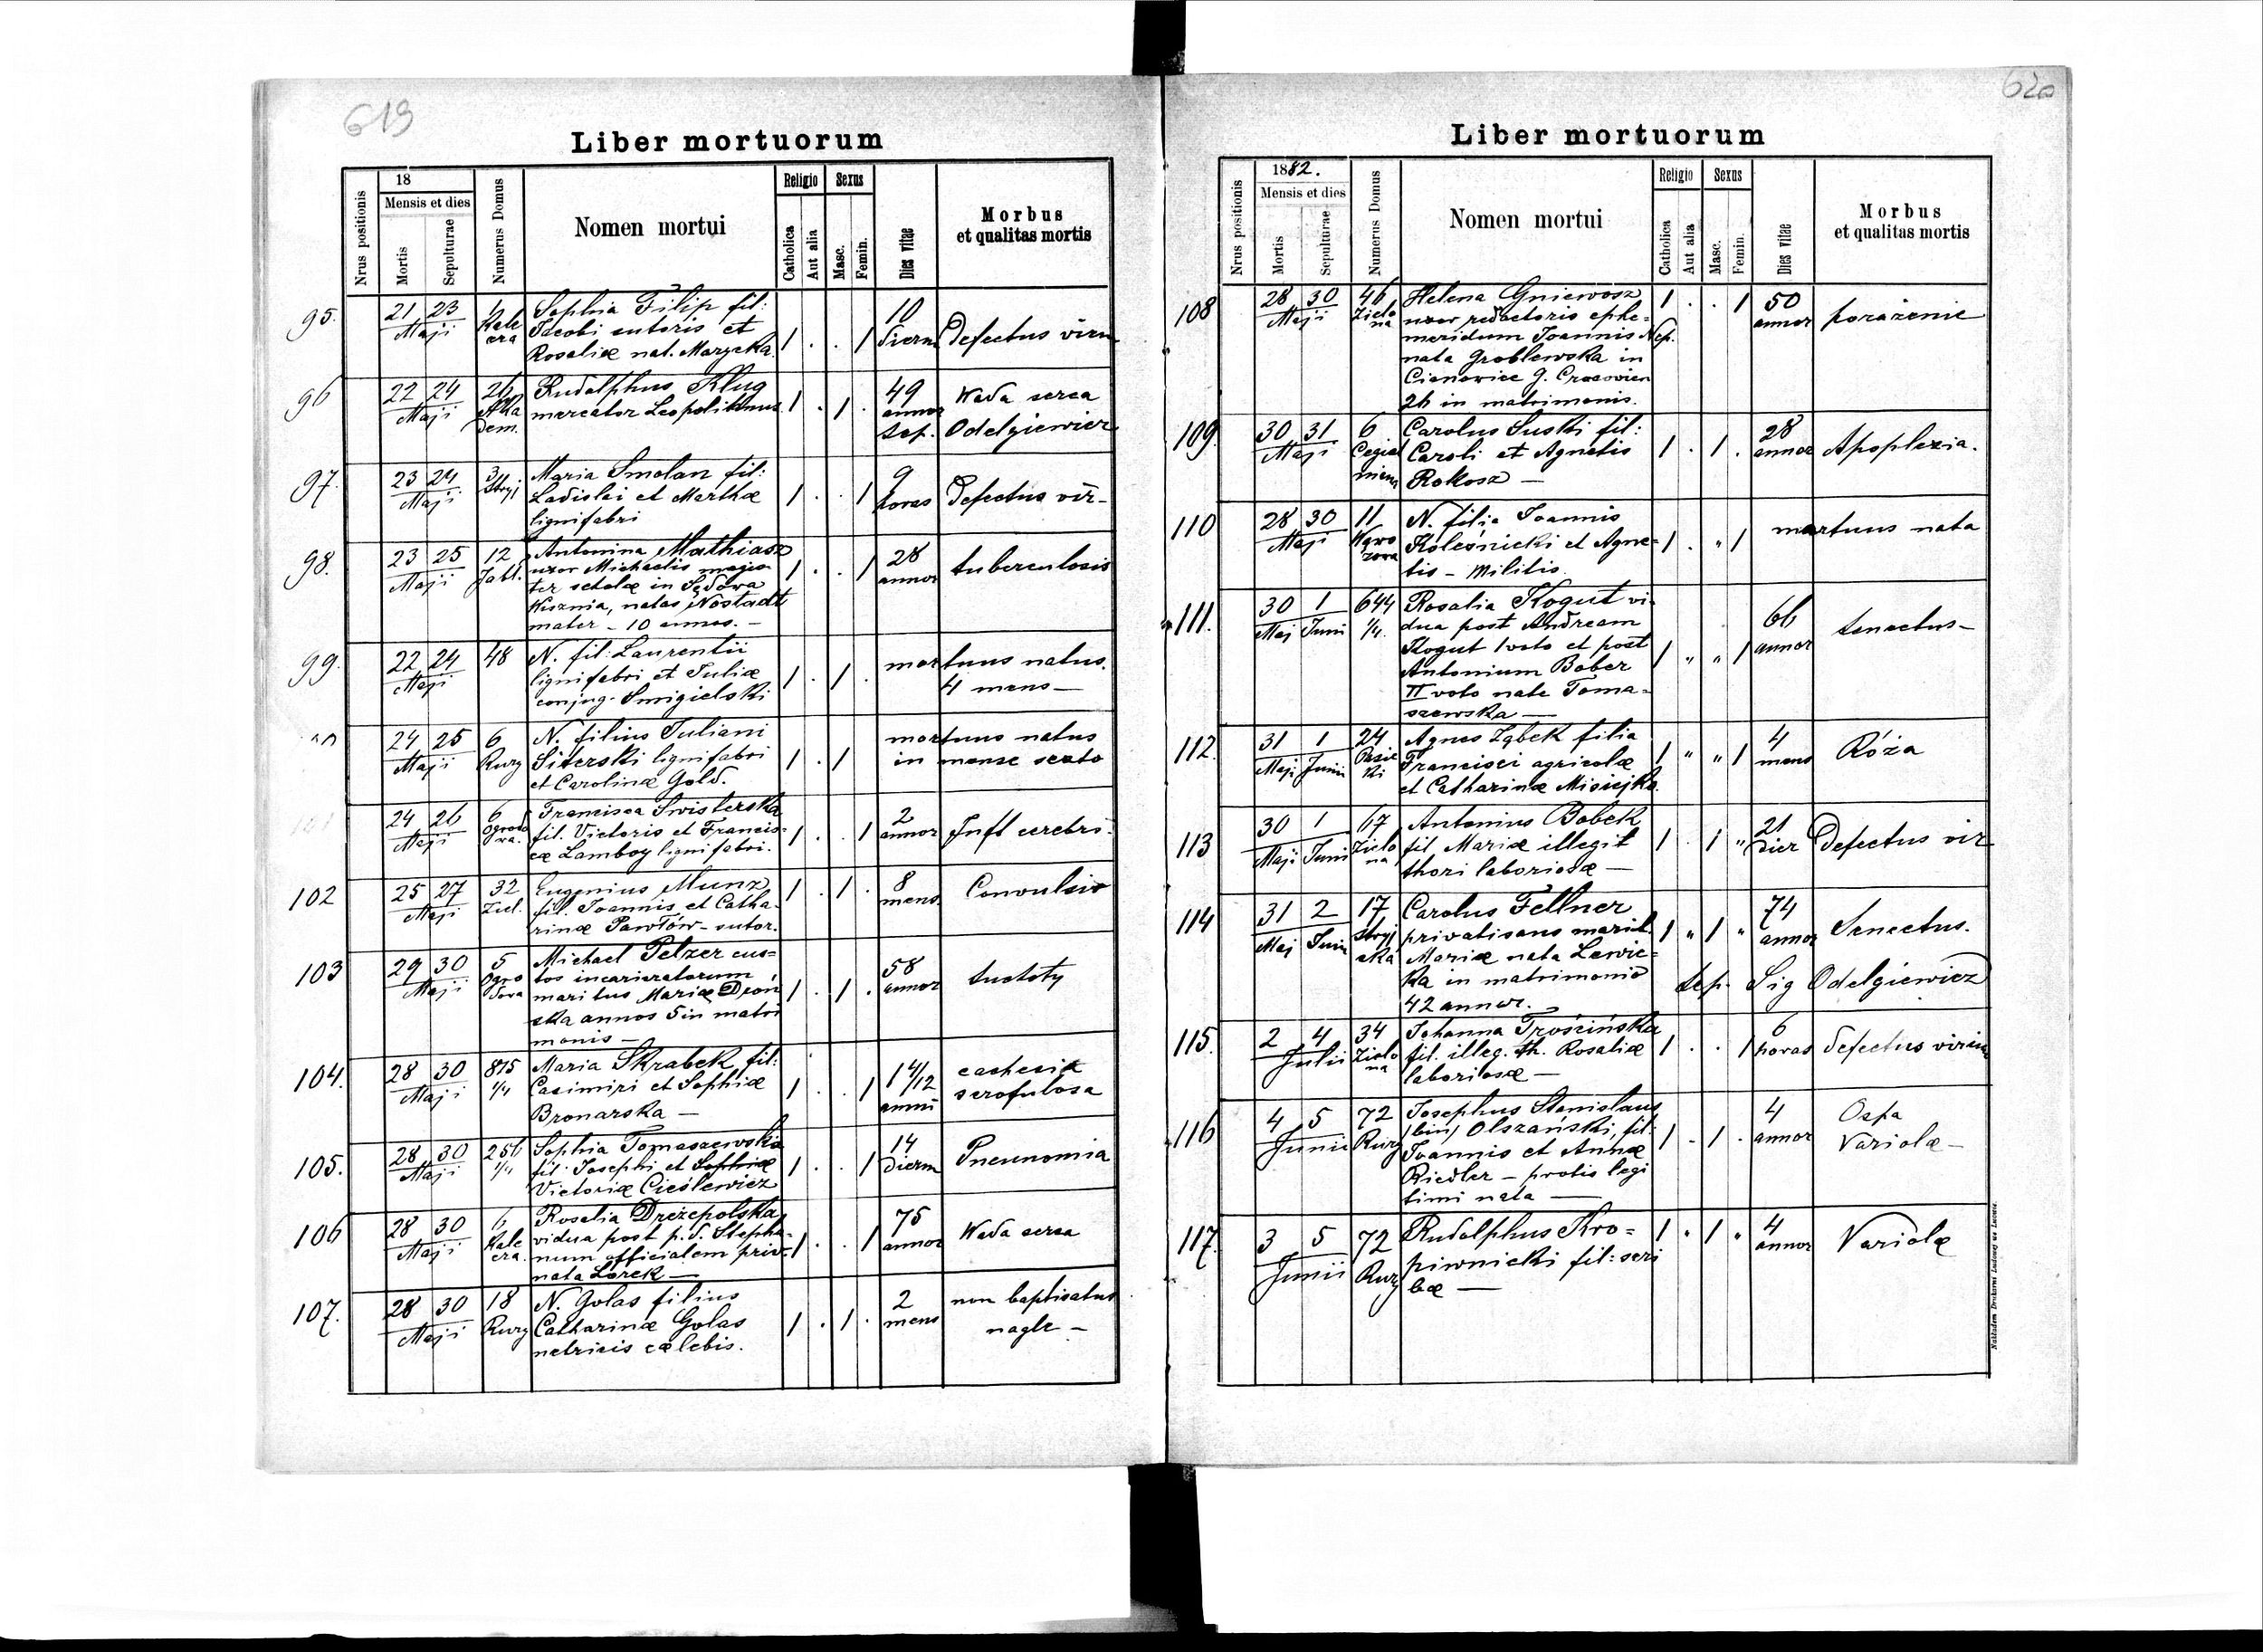 619
Liber mortuorum
Nrus positionis
18
Mensis et dies
Mortis
Sepulturae
Numerus Domus
Nomen mortui
Religio
Catholica
Aut alia
Sexus
Masc.
Femin.
Dies vitae
Morbus
et qualitas mortis
95.
21 23
Maji
Kale
cza
Sophia Filip fil:
Jacobi sutoris et
Rosaliæ nat. Marycka
1 . . 1
10
Dierum
Defectus viriu
96
22 24
Maji
26
Aka
dem.
Rudolphus Klug
mercator Leopolitanus
1 . 1 .
49
annor
Sep.
Wada serca
Odelgiewicz
97.
23 24
Maji
34
Stryj
Maria Smolan fil:
Ladislai et Marthæ
lignifabri
1 . . 1
9
horas
Defectus vir-
98.
23 25
Maji
12
Jabł.
Antonina Mathiasz
uxor Michaelis magis-
ter scholæ in Sądowa
Wisznia, natas Nostadt
mater - 10 annos. -
1 . . 1
28
annor
tuberculosis
99.
22 24
Maji
48
N. fil: Laurentii
lignifabri et Juliæ
conjug. Smigielski
1 . 1 .
mortuus natus.
4 mens -
24 25
Maji
6
Kurz
N. filius Juliani
Siterski lignifabri
et Carolinæ Gold.
1 . 1
mortuus natus
in mense sexto
24 26
Maji
6
Ogrodo
wa.
Francisca Swisterska
fil. Victoris et Francis-
cæ Lamboy lignifabri.
1 . . 1
2
annor
Infl cerebri.
102
25 27
Maji
32
Ziel.
Eugenius Munz
fil. Joannis et Catha-
rinæ Pawłów - sutor.
1 . 1 .
8
mens
Convulsio
103
29 30
Maji
5
Ogro
dowa
Michael Pelzer cus-
tos incarceratorum,
maritus Mariæ Dron
ska annos 5 in matri
monio -
1 . 1 .
58
annor
suchoty
104.
28 30
Maji
875
1/4
Maria Skrabek fil:
Casimiri et Sophiæ
Bronarska -
1 . . 1
1 4/12
anni
cachexia
scrofulosa
105.
28 30
Maji
256
1/4
Sophia Tomaszewska
fil. Josephi et Sophiæ
Victoriæ Cieślewicz
1 . . 1
14
Dierum
Pneunomia
106
28 30
Maji
6
Kale
cza.
Rosalia Drezepolska
vidua post p. d. Stepha-
num officialem priv-
nata Lorek -
1 . . 1
75
annor
Wada serca
107.
28 30
Maji
18
Kurz
N. Golas filius
Catharinæ Golas
nutricis cælebis.
1 . 1 .
2
mens
non baptisatus
nagle -
620
Liber mortuorum
Nrus positionis
1882.
Mensis et dies
Mortis
Sepulturae
Numerus Domus
Nomen mortui
Religio
Catholica
Aut alia
Sexus
Masc.
Femin.
Dies vitae
Morbus
et qualitas mortis
108
28 30
Maji
46
Zielo
na
Helena Gniewosz
uxor redactoris ephe-
meridum Joannis Nep.
nata Groblewska in
Cianowice G. Cracovien
26 in matrimonio.
1 . . 1
50
annor
porażenie
109.
30 31
Maji
6
Cegiel
niana
Carolus Suski fil:
Caroli et Agnetis
Rokosz -
1 . 1 .
28
annor
Apoplexia.
110
28 30
Maji
11
Wąwo
zowa
N. filia Joannis
Kolesnicki et Agne-
tis - Militis.
1 . " 1
mortuus nata
111.
30 1
Maj Juni
644
1/4.
Rosalia Kogut vi-
dua post Andream
Kogut 1 voto et post
Antonium Bober
II voto nata Toma-
szewska -
1 " " 1
66
annor
senectus -
112.
31 1
Maji Junii
24
Pasie
ki
Agnes Ząbek filia
Francisci agricolæ
et Catharinæ Misiejka
1 " " 1
4
mens
Róża
113
30 1
Maji Juni
67
Zielo
na
Antonius Bobek
fil Mariæ illegit
thori laboriosæ -
1 . 1 "
21
dier
Defectus vir
114
31 2
Maj Juni
17
Stryj
ska
Carolus Fellner
privatisans marit.
Mariæ nata Lewic-
ka in matrimonio
42 annor. -
1 " 1 "
74
annor
Senectus.
Sep. Sig Odelgiewicz
115.
2 4
Julii
34
Zielo
na
Johanna Trościńska
fil. illeg. th. Rosaliæ
laboriosæ -
1 . . 1
6
horas
Defectus viriu
116
4 5
Junii
72
Kurz
Josephus Stanislaus
(bin) Olszański, fil:
Joannis et Annæ
Riedler - prolis legi
timi nata -
1 . 1 .
4
annor
Ospa
Variolæ -
117.
3 5
Junii
72
Kurz
Rudolphus Kro-
piwnicki fil: scri
bæ -
1 . 1 .
4
annor
Variolæ
Nakładem Drukarni Ludowej we Lwowie.